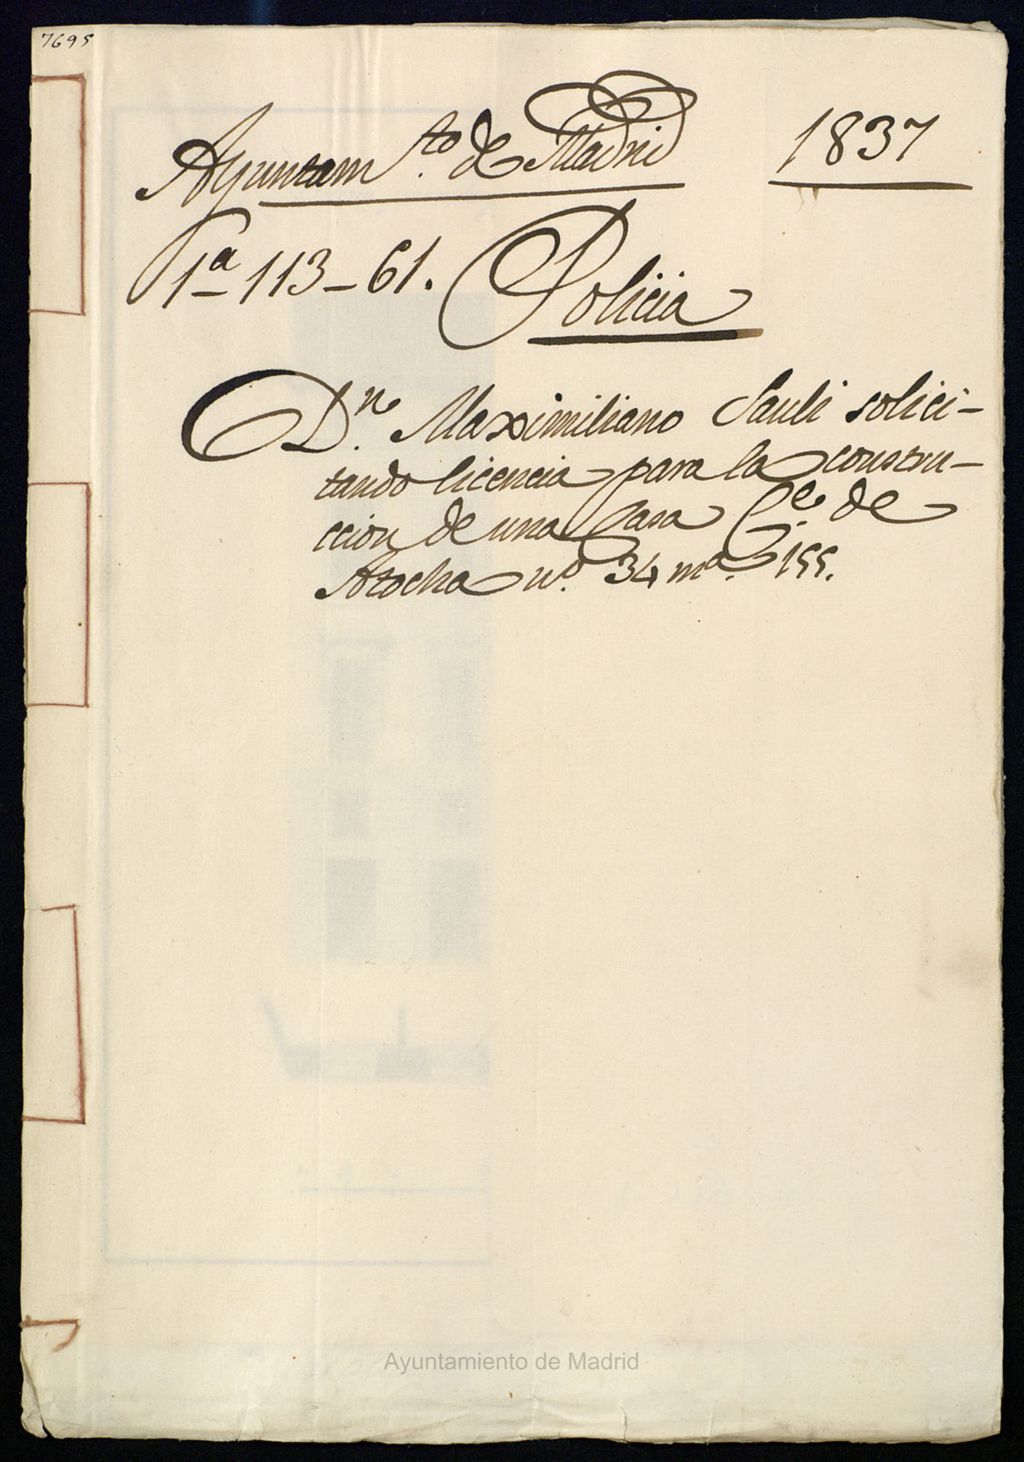 7695
Ayuntam.to de Madrid 1837
1a 113-61. Policia
Dn. Maximiliano Sauli solici-
tando licencia para la constru-
ccion de una Casa Ce. de
Atocha no. 34 ma. 155.
Ayuntamiento de Madrid